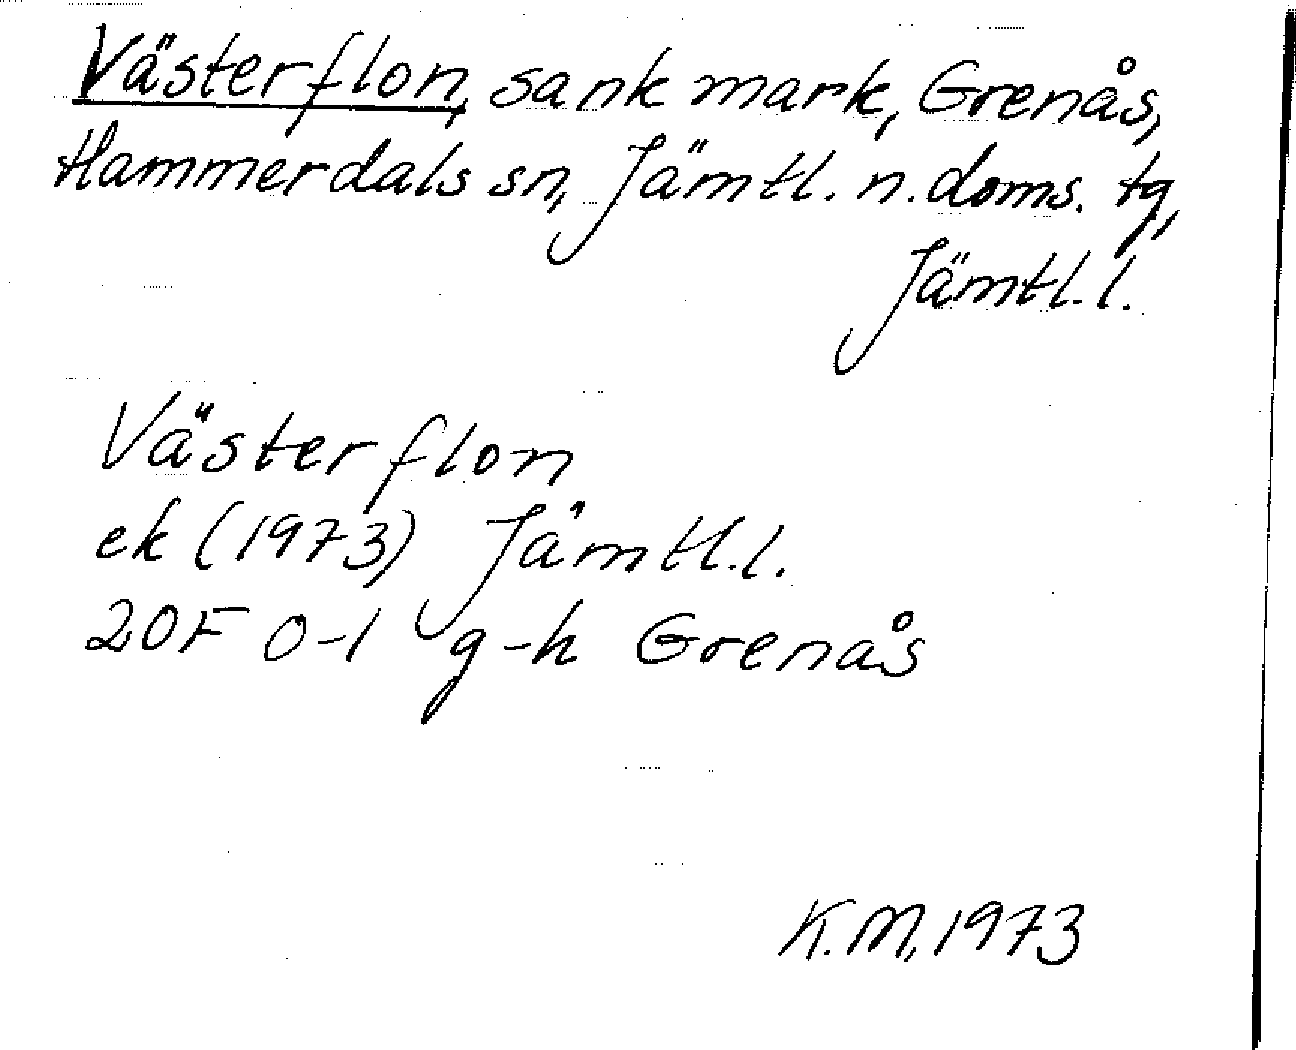 Västerflon, sank mark, Grenås,
Hammerdals sn, Jämtl. n. doms. tg,
Jämtl. l.
Västerflon
ek (1973) Jämtl. l.
20F 0-1 g-h Grenås
K.M. 1973